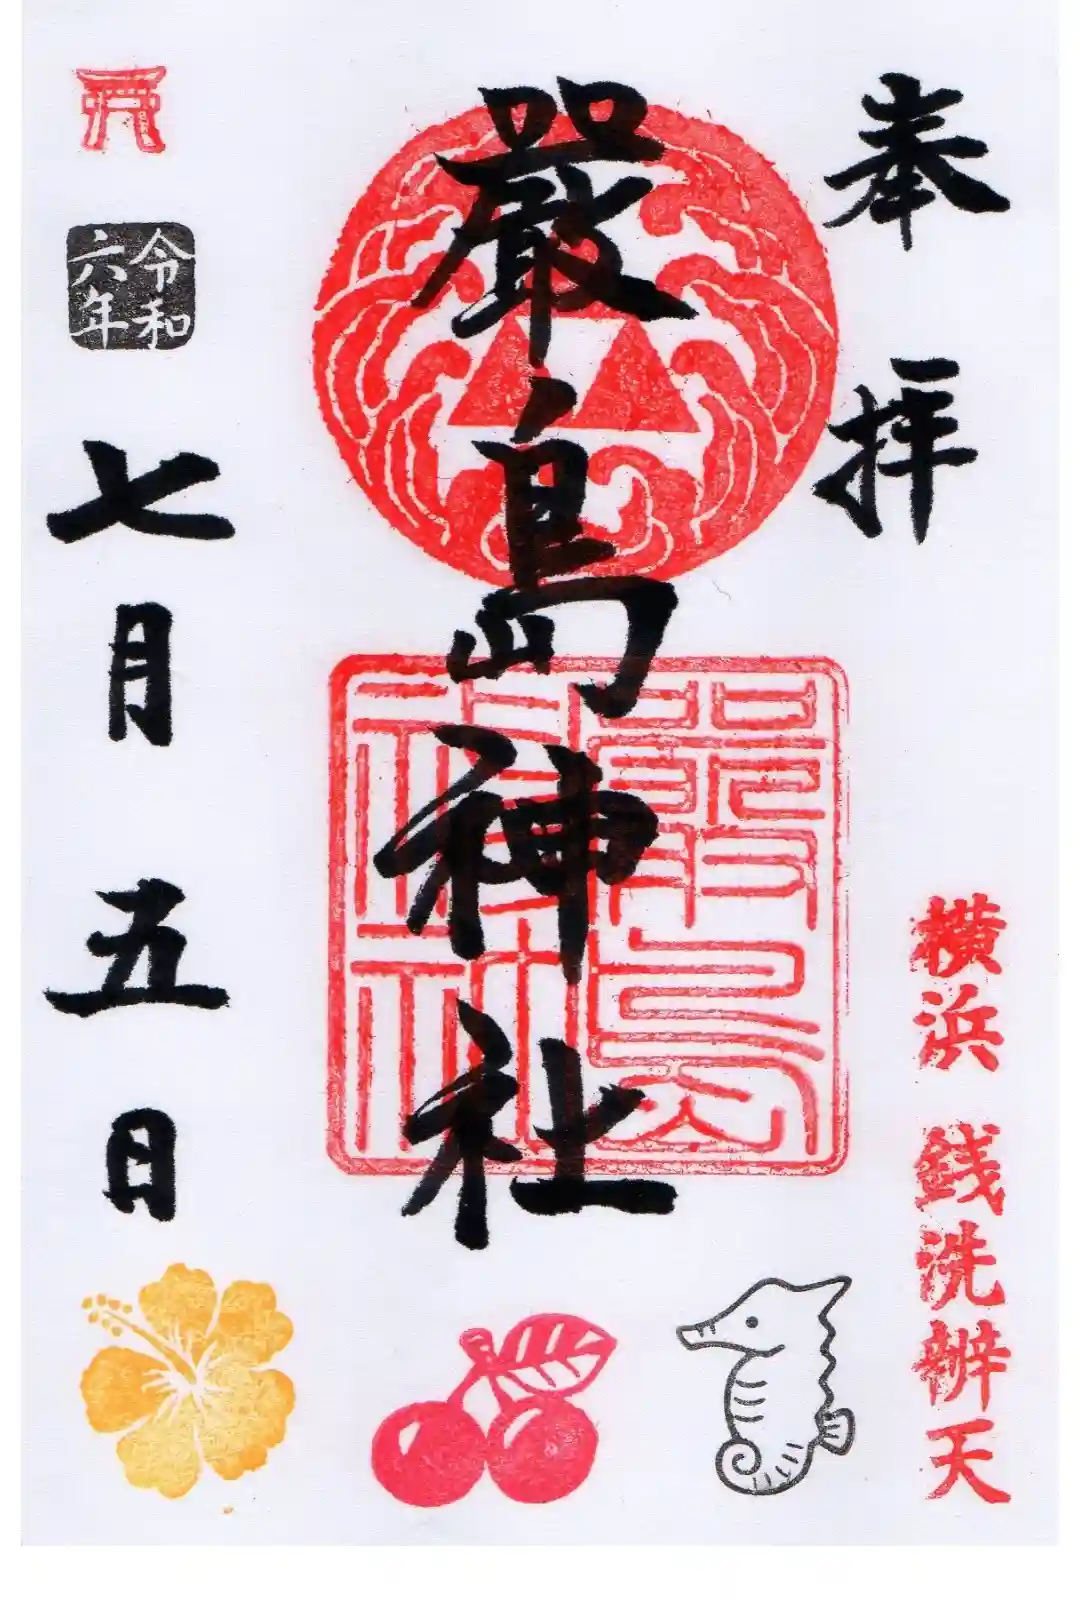 奉拝
横浜 銭洗辨天
嚴島神社
嚴島
神社
令和
六年
七月五日